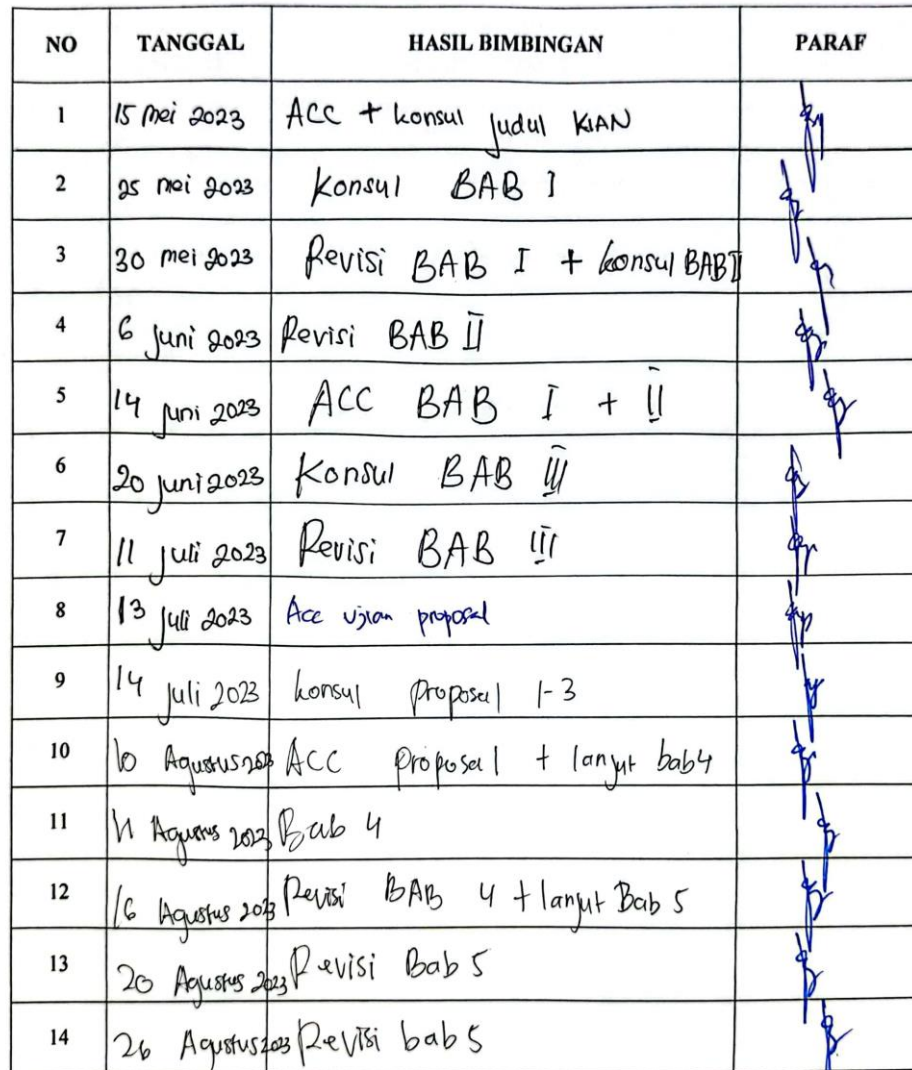 NO TANGGAL HASIL BIMBINGAN PARAF
1 15 mei 2023 ACC + konsul judul KIAN
2 25 mei 2023 Konsul BAB I
3 30 mei 2023 Revisi BAB I + konsul BAB II
4 6 Juni 2023 Revisi BAB II
5 14 Juni 2023 ACC BAB I + II
6 20 Juni 2023 Konsul BAB III
7 11 Juli 2023 Revisi BAB III
8 13 Juli 2023 Acc ujian proposal
9 14 Juli 2023 konsul proposal 1-3
10 10 Agustus 2023 ACC proposal + lanjut bab 4
11 11 Agustus 2023 Bab 4
12 16 Agustus 2023 Revisi BAB 4 + lanjut Bab 5
13 20 Agustus 2023 Revisi Bab 5
14 26 Agustus 2023 Revisi bab 5